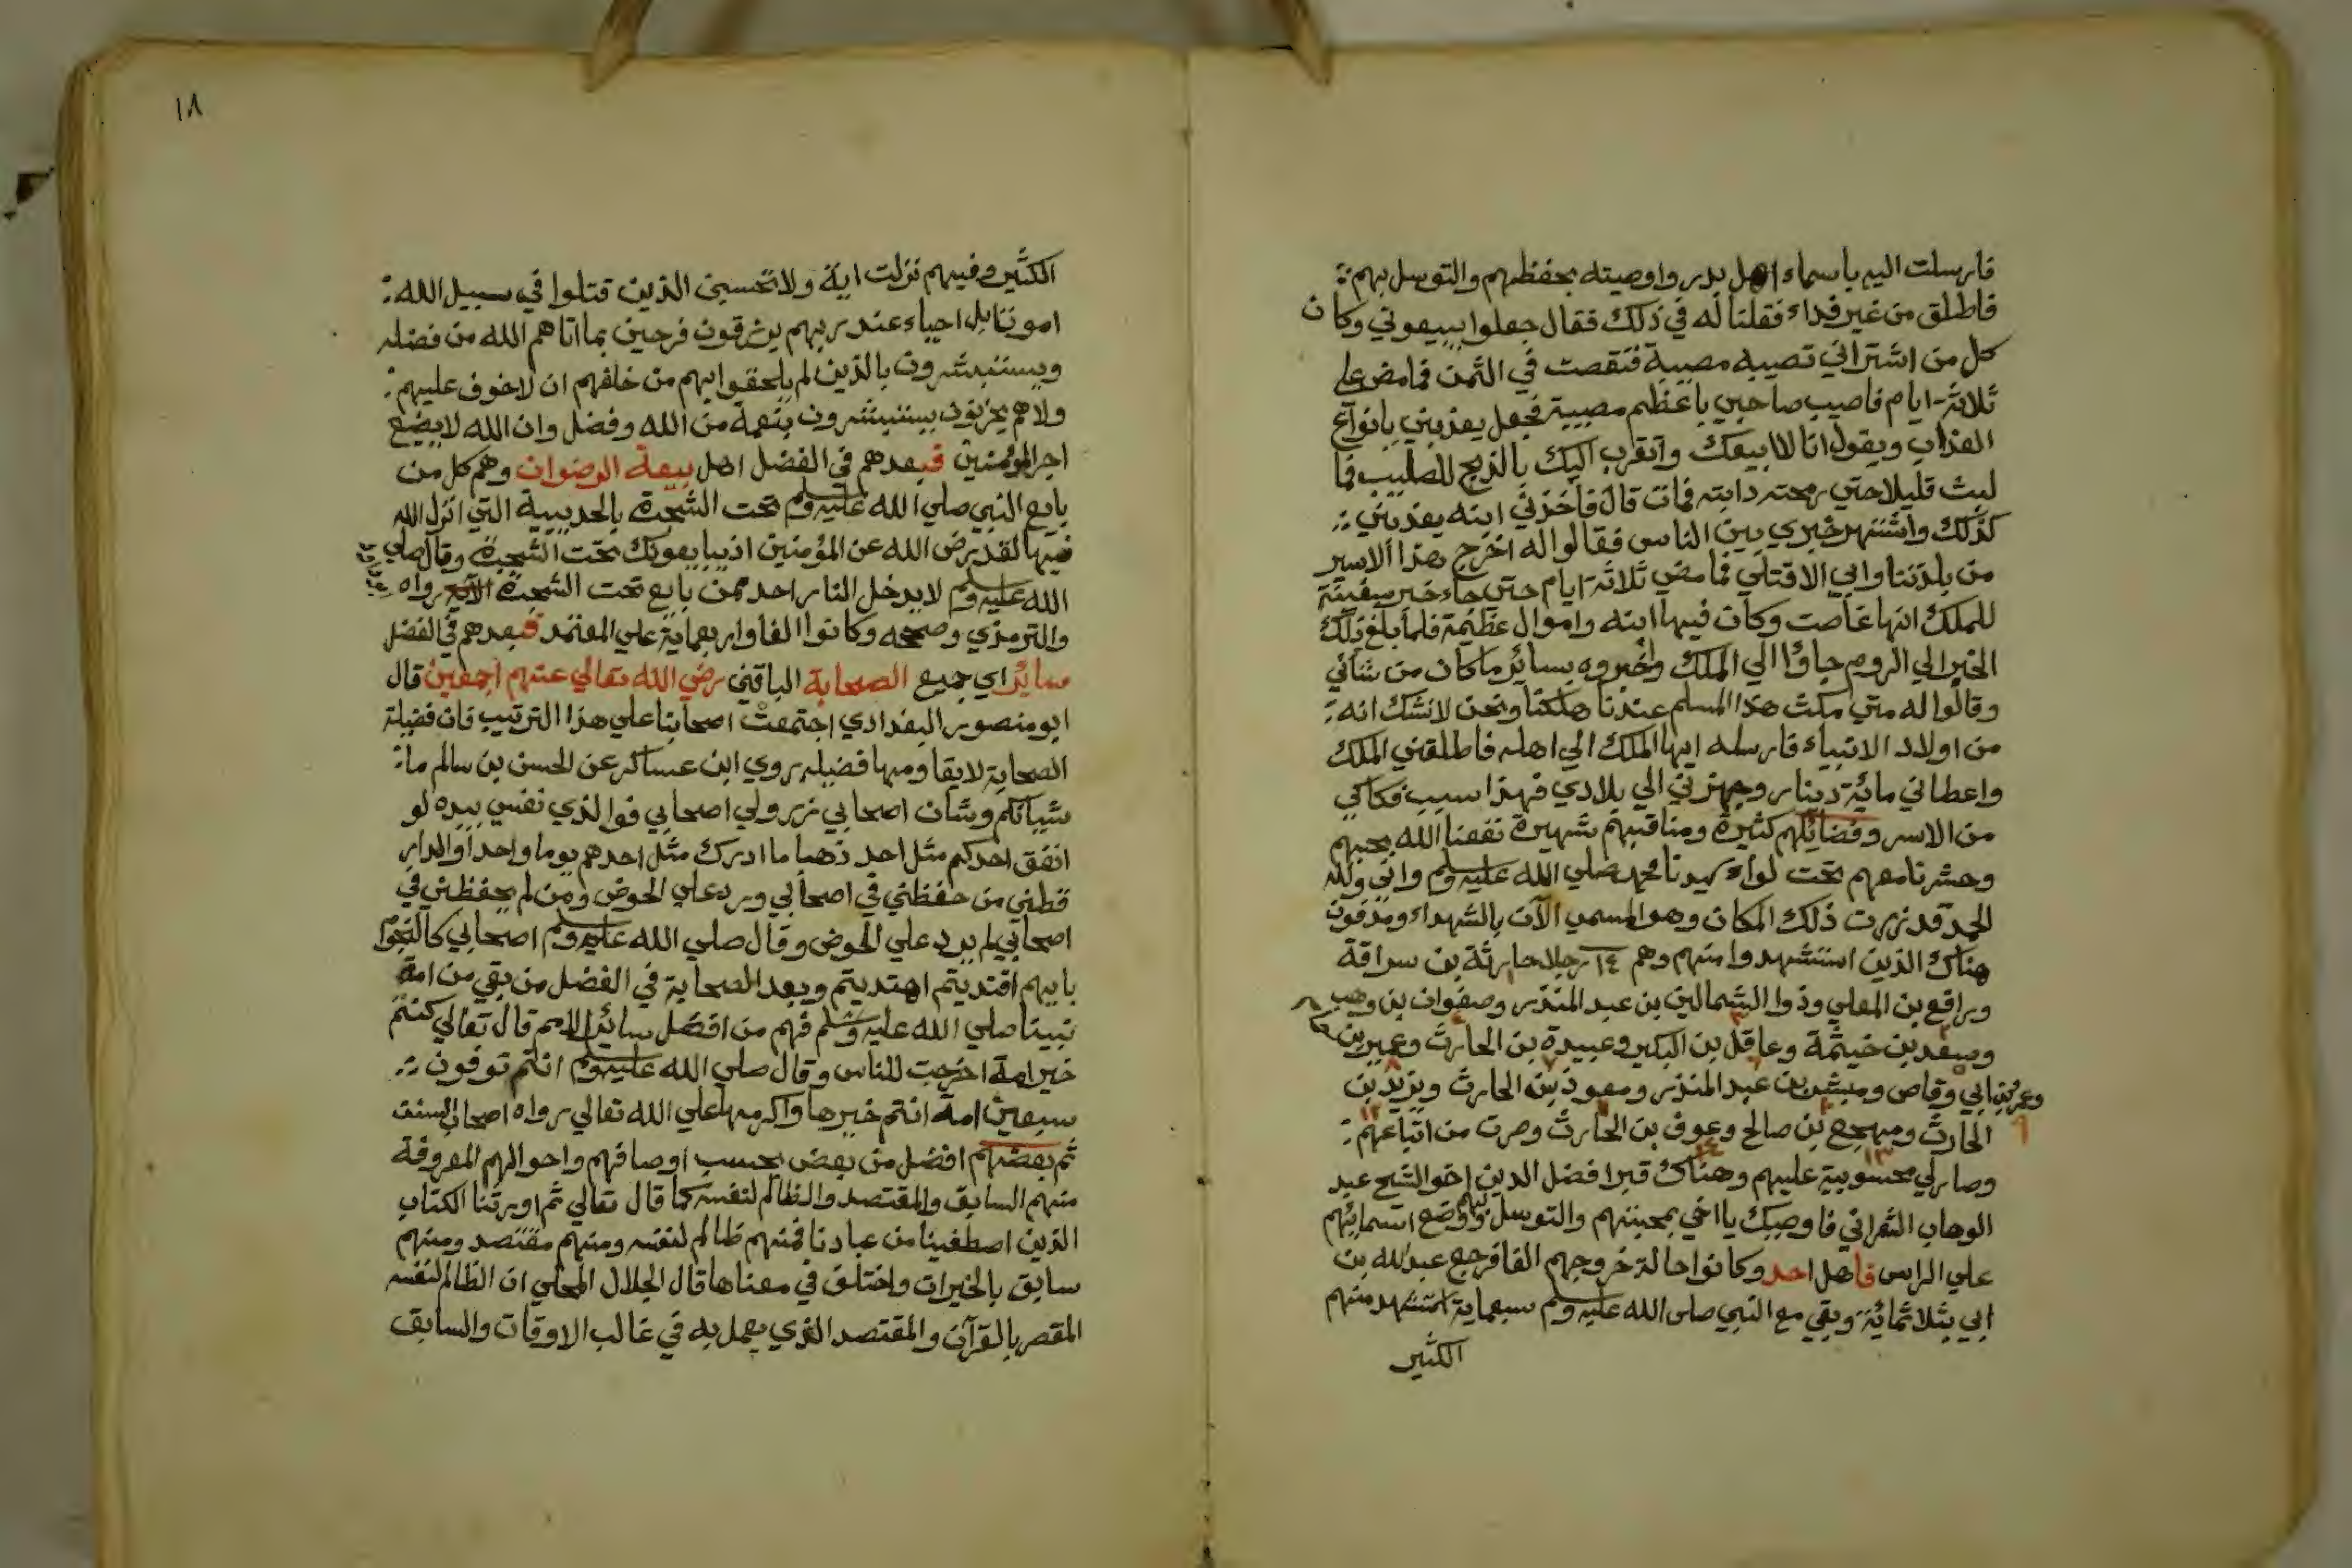 فارسلت اليه باسماء اهل بدر واوصيته بحفظهم والتوسل بهم
فاطلق من غير فداء فقلنا له في ذلك فقال جعلوا يبيعوني وكان
كل من اشتراني تصيبه مصيبة فنقصت في الثمن فما مضي علي
ثلاثة ايام فاصيب صاحبي باعظم مصيبة فجعل يعذبني بانواع
العذاب ويقول انا لا ابيعك واتقرب اليك بالذبح للصليب فما
لبث قليلا حتي رمحته دابته فمات قال فاخذني ابنه يعذبني
كذلك واشتهر خبري بين الناس فقالوا له اخرج هذا الاسير
من بلدتنا وابي الا قتلي فما مضي ثلاثة ايام حتي جاء خبر سفينة
للملك انها غاصت وكان فيها ابنه واموال عظيمة فلما بلغ ذلك
الخبر الي الروم جاوا الي الملك واخبروه بسائر ما كان من شاني
وقالوا له متي مكث هذا المسلم عندنا هلكنا ونحن لا نشك انه
من اولاد الانبياء فارسله ايها الملك الي اهله فاطلقني الملك
واعطاني مائة دينار وجهزني الي بلادي فهذا سبب فكاكي
من الاسر وفضائلهم كثيرة ومناقبهم شهيرة نفعنا الله بحبهم
وحشرنا معهم تحت لواء سيدنا محمد صلي الله عليه وسلم واني ولله
الحمد قد زرت ذلك المكان وهو المسمي الآن بالشهداء ومدفون
هناك الذين استشهدوا منهم وهم ١٤ رجلا حارثة بن سراقة
ورافع بن المعلي وذوا الشمالين بن عبد المنذر وصفوان بن وهب
وسعد بن خيثمة وعاقل بن البكير وعبيدة بن الحارث وعمير بن
ابي وقاص ومبشر بن عبد المنذر ومعوذ بن الحارث ويزيد بن
الحارث ومهجع بن صالح وعوف بن الحارث وصرت من اتباعهم
وصار لي محسوبية عليهم وهناك قبر افضل الدين اخو الشيخ عبد
الوهاب الشعراني فاوصيك يا اخي بمحبتهم والتوسل بهم ووضع اسمائهم
علي الراس فاهل احد وكانوا حالة خروجهم الفا فرجع عبد الله بن
ابي بثلاثمائة وبقي مع النبي صلي الله عليه وسلم سبعماية استشهد منهم
الكثير
١٨
الكثير وفيهم نزلت اية ولا تحسبن الذين قتلوا في سبيل الله
امواتا بل احياء عند ربهم يرزقون فرحين بما اتاهم الله من فضله
ويستبشرون بالذين لم يلحقوا بهم من خلفهم ان لا خوف عليهم
ولا هم يحزنون يستبشرون بنعمة من الله وفضل وان الله لا يضيع
اجر المؤمنين فبعدهم في الفضل اهل بيعة الرضوان وهم كل من
بايع النبي صلي الله عليه وسلم تحت الشجرة بالحديبية التي انزل الله
فيها لقد رضي الله عن المؤمنين اذ يبايعونك تحت الشجرة وقال صلي
الله عليه وسلم لا يدخل النار احد ممن بايع تحت الشجرة رواه
والترمذي وصححه وكانوا الفا واربعماية علي المعتمد فبعدهم في الفضل
سائر اي جميع الصحابة الباقين رضي الله تعالي عنهم اجمعين قال
ابو منصور البغدادي اجتمعت اصحابنا علي هذا الترتيب فان فضيلة
الصحابة لا يقاومها فضيلة روي ابن عساكر عن الحسن بن سالم ما
شانكم وشان اصحابي ذروا لي اصحابي فوالذي نفسي بيده لو
انفق احدكم مثل احد ذهبا ما ادرك مثل احدهم يوما واحدا والدار
قطني من حفظني في اصحابي ورد علي الحوض ومن لم يحفظني في
اصحابي لم يرد علي الحوض وقال صلي الله عليه وسلم اصحابي كالنجوم
بايهم اقتديتم اهتديتم وبعد الصحابة في الفضل من بقي من امة
نبينا صلي الله عليه وسلم فهم من افضل سائر الامم قال تعالي كنتم
خير امة اخرجت للناس وقال صلي الله عليه وسلم انتم توفون
سبعين امة انتم خيرها واكرمها علي الله تعالي رواه اصحاب السنن
ثم بعضهم افضل من بعض بحسب اوصافهم واحوالهم المعروفة
منهم السابق والمقتصد والظالم لنفسه كما قال تعالي ثم اورثنا الكتاب
الذين اصطفينا من عبادنا فمنهم ظالم لنفسه ومنهم مقتصد ومنهم
سابق بالخيرات واختلف في معناها قال الجلال المحلي ان الظالم لنفسه
المقصر بالقرآن والمقتصد الذي يعمل به في غالب الاوقات والسابق